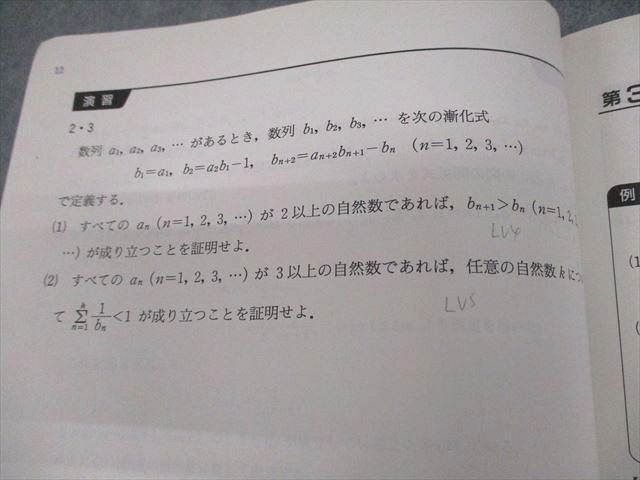 12
演習
2・3
数列 a₁, a₂, a₃, … があるとき，数列 b₁, b₂, b₃, … を次の漸化式
b₁=a₁, b₂=a₂b₁−1, bₙ₊₂=aₙ₊₂bₙ₊₁−bₙ (n=1, 2, 3, …)
で定義する．
(1) すべての aₙ (n=1, 2, 3, …) が 2以上の自然数であれば，bₙ₊₁>bₙ (n=1, 2,
…) が成り立つことを証明せよ．
LV4
(2) すべての aₙ (n=1, 2, 3, …) が 3以上の自然数であれば，任意の自然数 k につ
て \sum_{n=1}^{k} \frac{1}{bₙ}<1 が成り立つことを証明せよ．
LV5
第3
例
(1
(